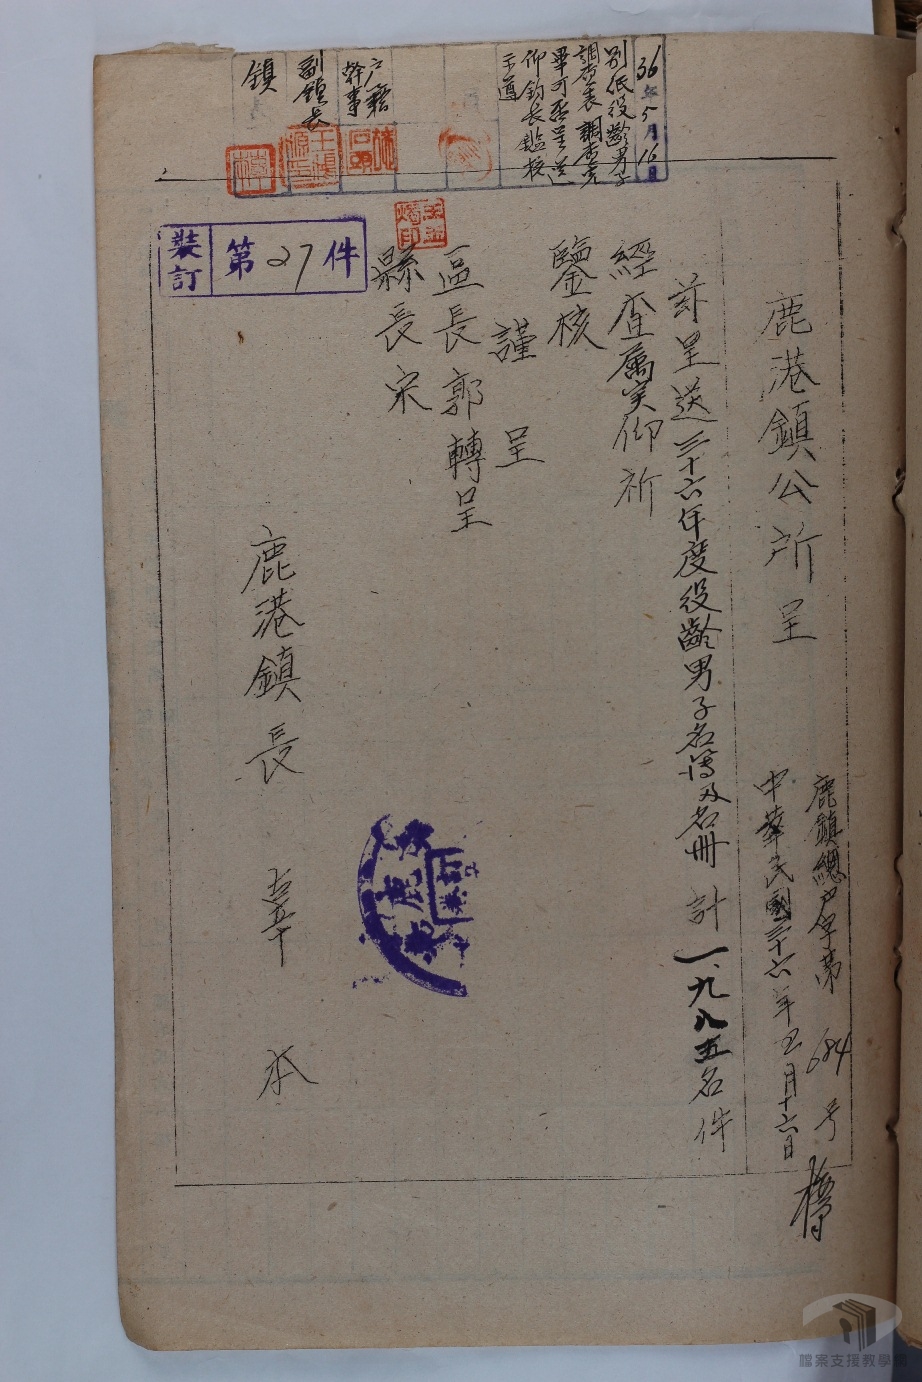 36年5月16日
別低役齡男子
調查表調查完
畢可否呈送
仰鈞長鑑核
示遵
戶籍
幹事
副鎮長
鎮
裝訂
第27件
鹿港鎮公所呈
鹿鎮總戶字第684号
中華民國三十六年五月十六日
茲呈送三十六年度役齡男子名簿及名冊計一、九八五名件
經查属实仰祈
鑒核
謹呈
區長郭轉呈
縣長宋
鹿港鎮長辜
檔案支援教學網